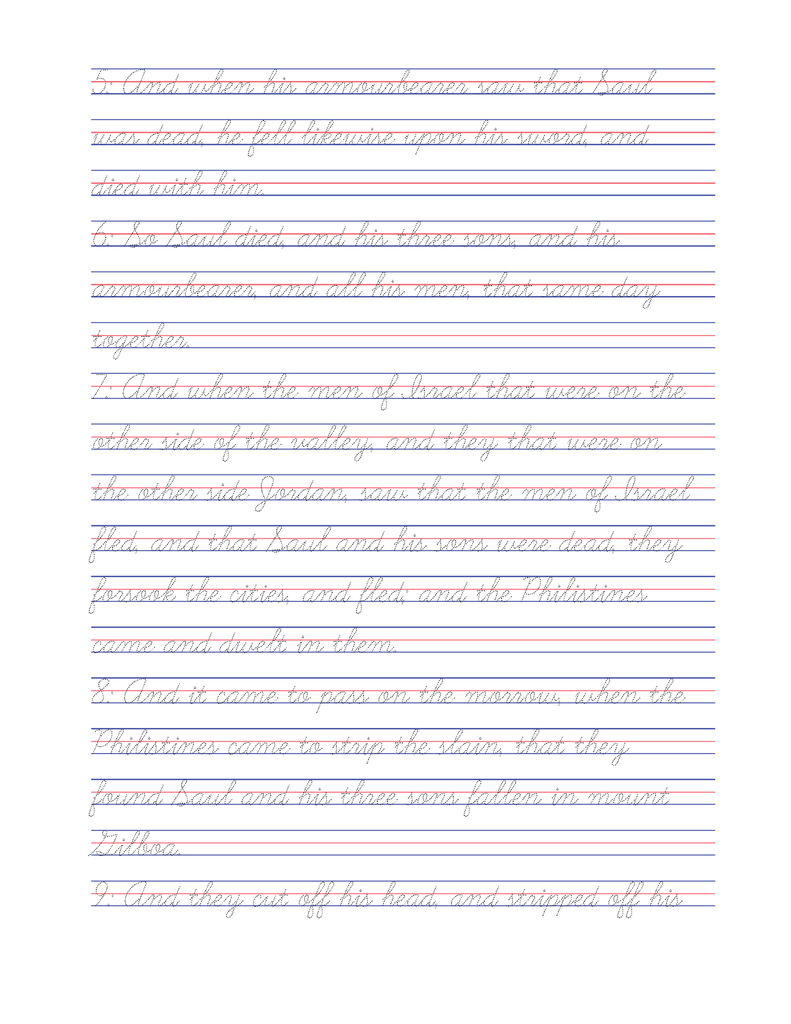 5: And when his armourbearer saw that Saul
was dead, he fell likewise upon his sword, and
died with him.
6: So Saul died, and his three sons, and his
armourbearer, and all his men, that same day
together.
7: And when the men of Israel that were on the
other side of the valley, and they that were on
the other side Jordan, saw that the men of Israel
fled, and that Saul and his sons were dead, they
forsook the cities, and fled; and the Philistines
came and dwelt in them.
8: And it came to pass on the morrow, when the
Philistines came to strip the slain, that they
found Saul and his three sons fallen in mount
Gilboa.
9: And they cut off his head, and stripped off his